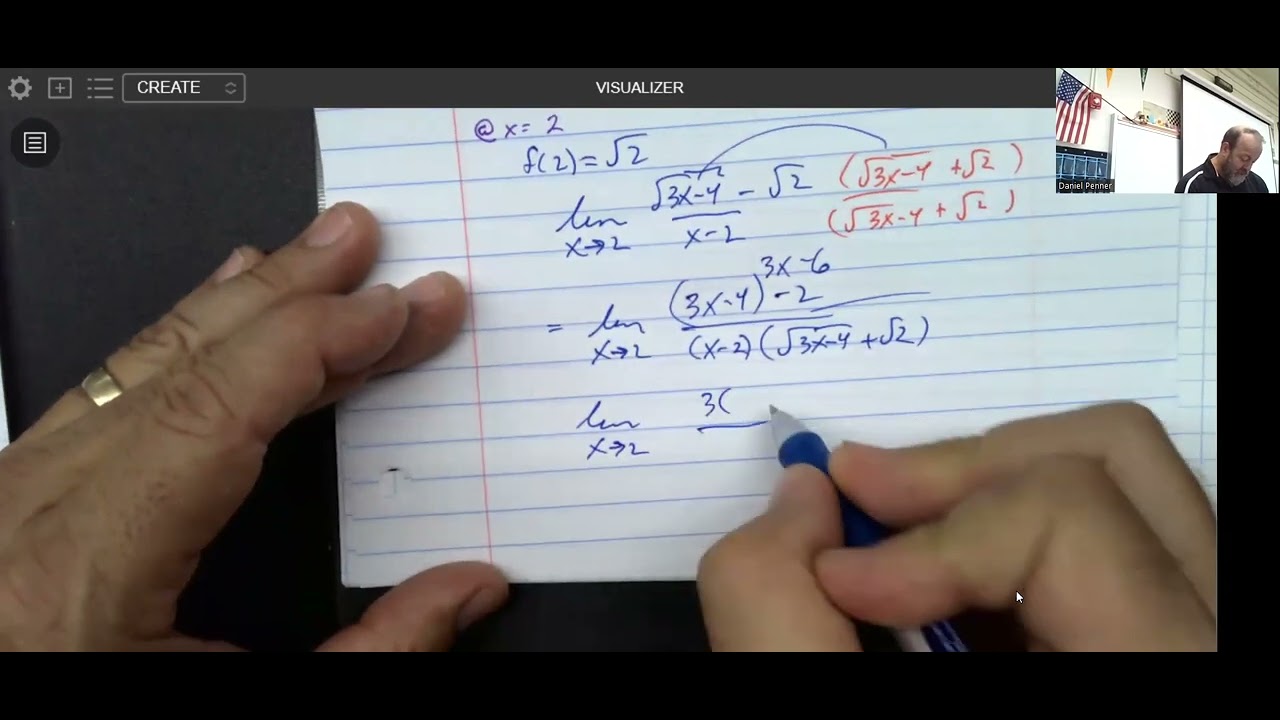 CREATE
VISUALIZER
Daniel Penner
@ x = 2
f(2) = √2
lim x→2 (√3x-4 - √2)/(x-2) (√3x-4 + √2)/(√3x-4 + √2)
3x-6
= lim x→2 ((3x-4) - 2)/((x-2)(√3x-4 + √2))
lim x→2 3(